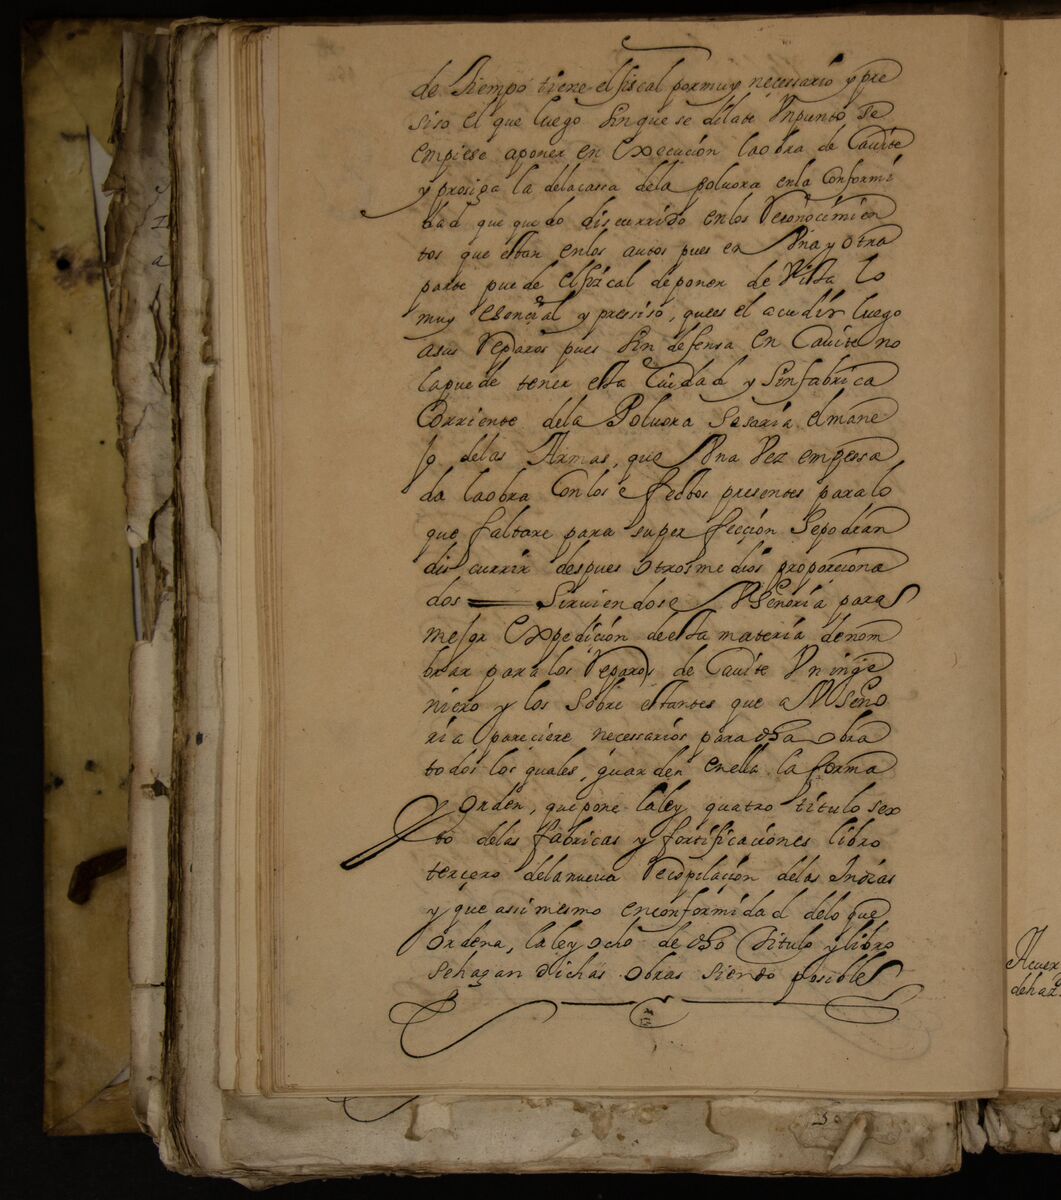 de tiempo tiene el fiscal por muy necessario y pre
siso el que luego sin que se dilate Vn punto se
empiese aponer en execución la obra de Cauite
y prosiga la dela cassa dela poluora en la Conformi
dad que quedo discurrido en los Reconocimien
tos que estan en los autos pues en Vna y otra
parte puede el fizcal deponer de Vista lo
muy esencial y pressiso, que es el acudir luego
asus Reparos pues sin defensa en Cauite no
la puede tener esta Ciudad y sin fabrica
Corriente dela Poluora Sesaria el mane
Jo delas Armas, que Vna Vez empessa
da la obra Con los efectos presentes para lo
que faltare para su perfección Se podran
discurrir despues otros medios proporciona
dos Siruiendose VSeñoria para
mejor expedición de esta materia de nom
brar para los Reparos de Cauite Vn inge
niero y los sobrestantes que a VSeño
ria pareciere necessarios para dha obra
todos los quales, guarden en ella la forma
y orden, que pone la ley quatro titulo sex
to delas fabricas y fortificaciones libro
tercero dela nueva Recopilación delas Indias
y que assi mesmo en conformidad delo que
ordena, la ley ocho de dho titulo y libro
se hagan dichas obras siendo posible
Acuer
de haz